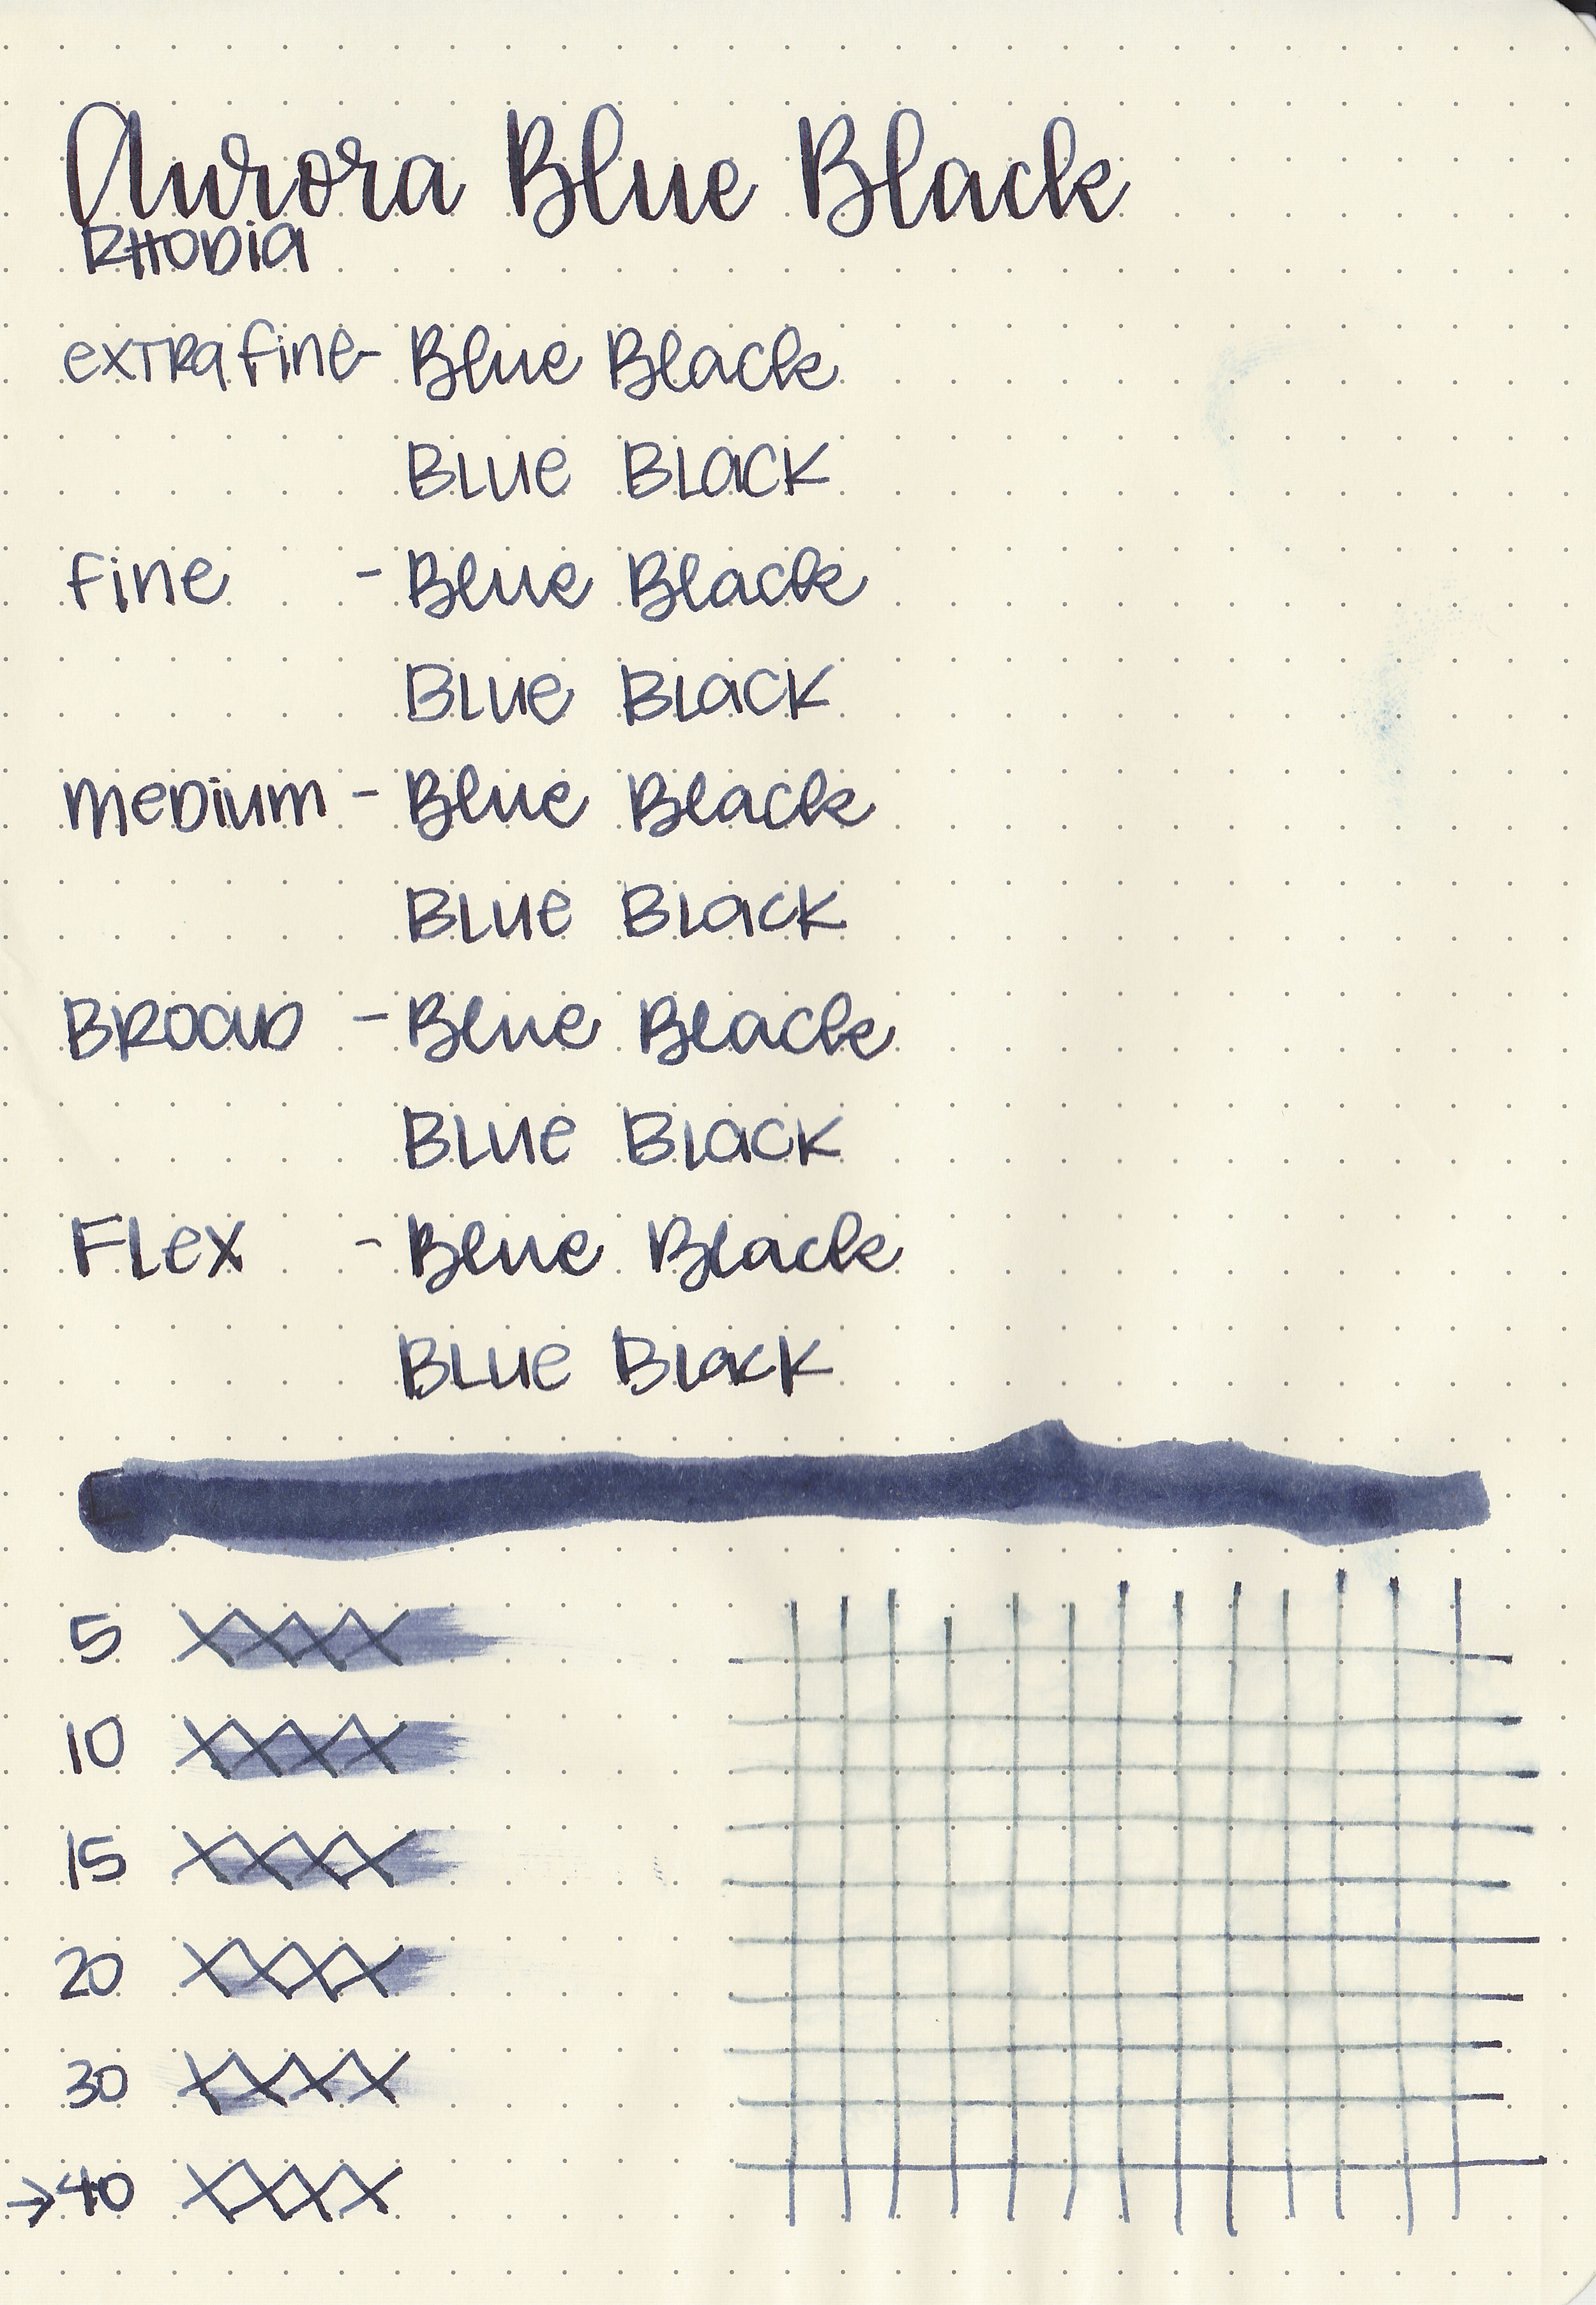 Aurora Blue Black
RHODIA
extra fine - Blue Black
Blue Black
fine - Blue Black
Blue Black
medium - Blue Black
Blue Black
Broad - Blue Black
Blue Black
Flex - Blue Black
Blue Black
5 XXXX
10 XXXX
15 XXXX
20 XXXX
30 XXXX
→40 XXXX